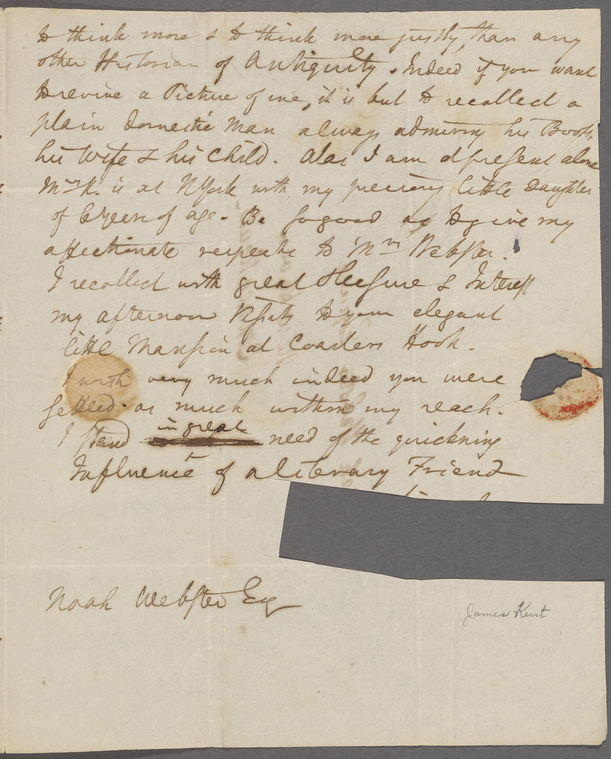 to think more & to think more justly, than any
other Historian of Antiquity. Indeed if you want
to revive a Picture of me, it is but to recollect a
plain domestic Man always admiring his Books
his Wife & his Child. Alas I am at present alone
Mrs K. is at NYork with my precious little Daughter
of age. Be so good as to give my
affectionate respects to Mrs Webster.
I recollect with great Pleasure & Interest
my afternoon Visits to your elegant
little Mansion at Coarlers Hook.
I wish very much indeed you were
settled as much within my reach.
I stand in great need of the quickning
Influence of a literary Friend
Noah Webster Esq
James Kent